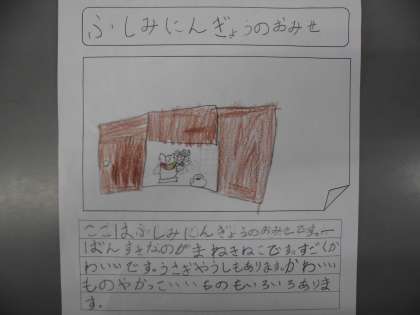 ふしみにんぎょうのおみせ
ここはふしみにんぎょうのおみせです。一
ばんすきなのがまねきねこです。すごくか
わいいです。うさぎやうしもあります。かわいい
ものやかっこいいものもいろいろありま
す。